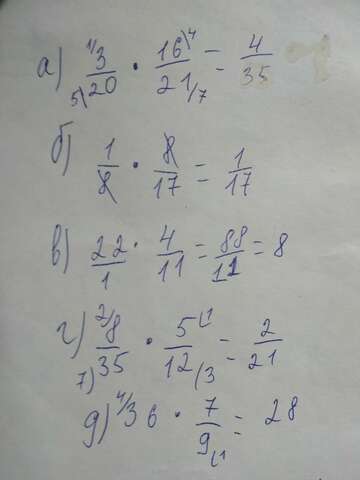 а) 1/3/20 5) · 16\4/21/7 = 4/35
б) 1/8 · 8/17 = 1/17
в) 22/1 · 4/11 = 88/11 = 8
г) 2/8/35 7) · 5\1/12/3 = 2/21
д) 4/36 · 7/9\1 = 28